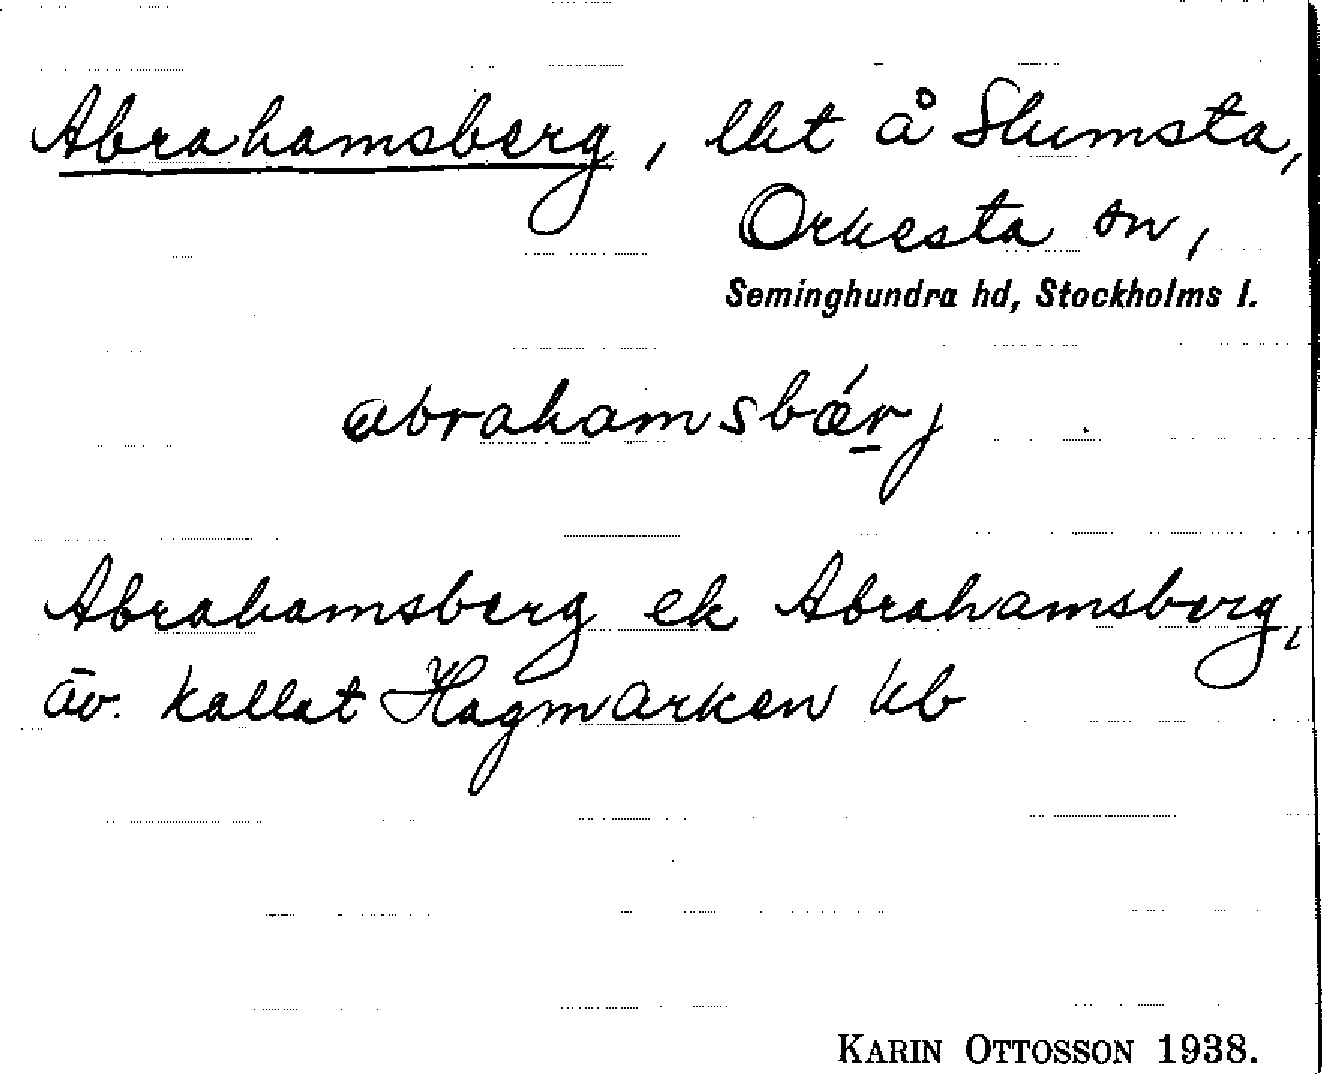 Abrahamsberg, lht å Slumsta,
Orkesta sn,
Seminghundra hd, Stockholms l.
abrahamsbǽrj
Abrahamsberg ek Abrahamsberg,
äv. kallat Hagmarken kb
KARIN OTTOSSON 1938.